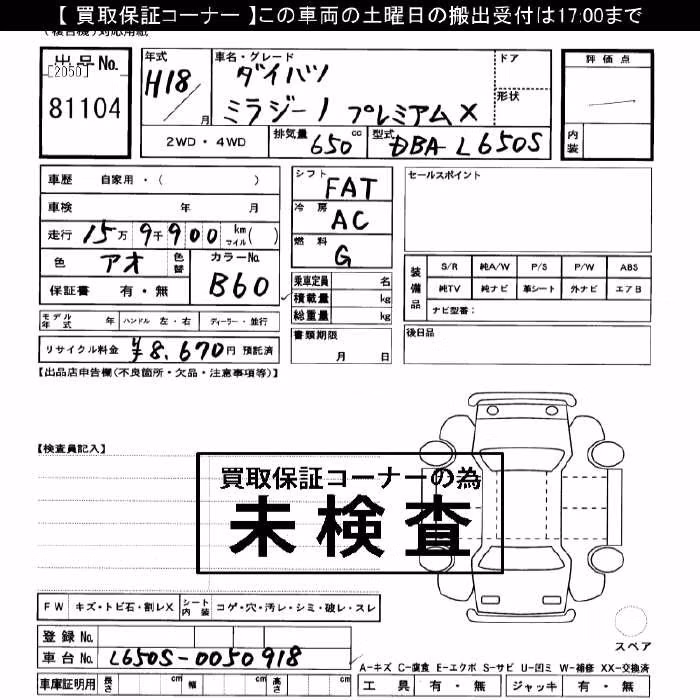 【 買取保証コーナー 】この車両の土曜日の搬出受付は17:00まで
出品No.
[2050]
81104
年式
H18
月
車名・グレード
ダイハツ
ミラジーノ プレミアムX
ドア
形状
評価点
内装
2WD・4WD
排気量 650 cc
型式 DBA-L650S
車歴 自家用・( )
車検 年 月
走行 15万 9千900 km マイル( )
色 アオ 色替
カラーNo. B60
保証書 有・無
シフト FAT
冷房 AC
燃料 G
乗車定員 名
積載量 kg
総重量 kg
書類期限
月 日
セールスポイント
装備品
S/R 純A/W P/S P/W ABS
純TV 純ナビ 革シート 外ナビ エアB
ナビ型番:
後日品
モデル年式 年 ハンドル 左・右 ディーラー・並行
リサイクル料金 ¥8,670円 預託済
【出品店申告欄(不良箇所・欠品・注意事項等)】
【検査員記入】
買取保証コーナーの為
未検査
FW キズ・トビ石・割レX シート内装 コゲ・穴・汚レ・シミ・破レ・スレ
スペア
登録No.
車台No. L650S-0050918
A-キズ C-腐食 E-エクボ S-サビ U-凹ミ W-補修 XX-交換済
車庫証明用 長さ cm 幅 cm 高さ cm
工具 有・無 ジャッキ 有・無